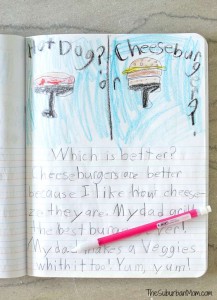 Hot Dog?
or
Cheeseburger?
Which is better?
Cheeseburgers are better
because I like how chees-
they are. My dad
the best burger
My dad makes a Veggies
whith it too! Yum, yum!
TheSuburbanMom.com